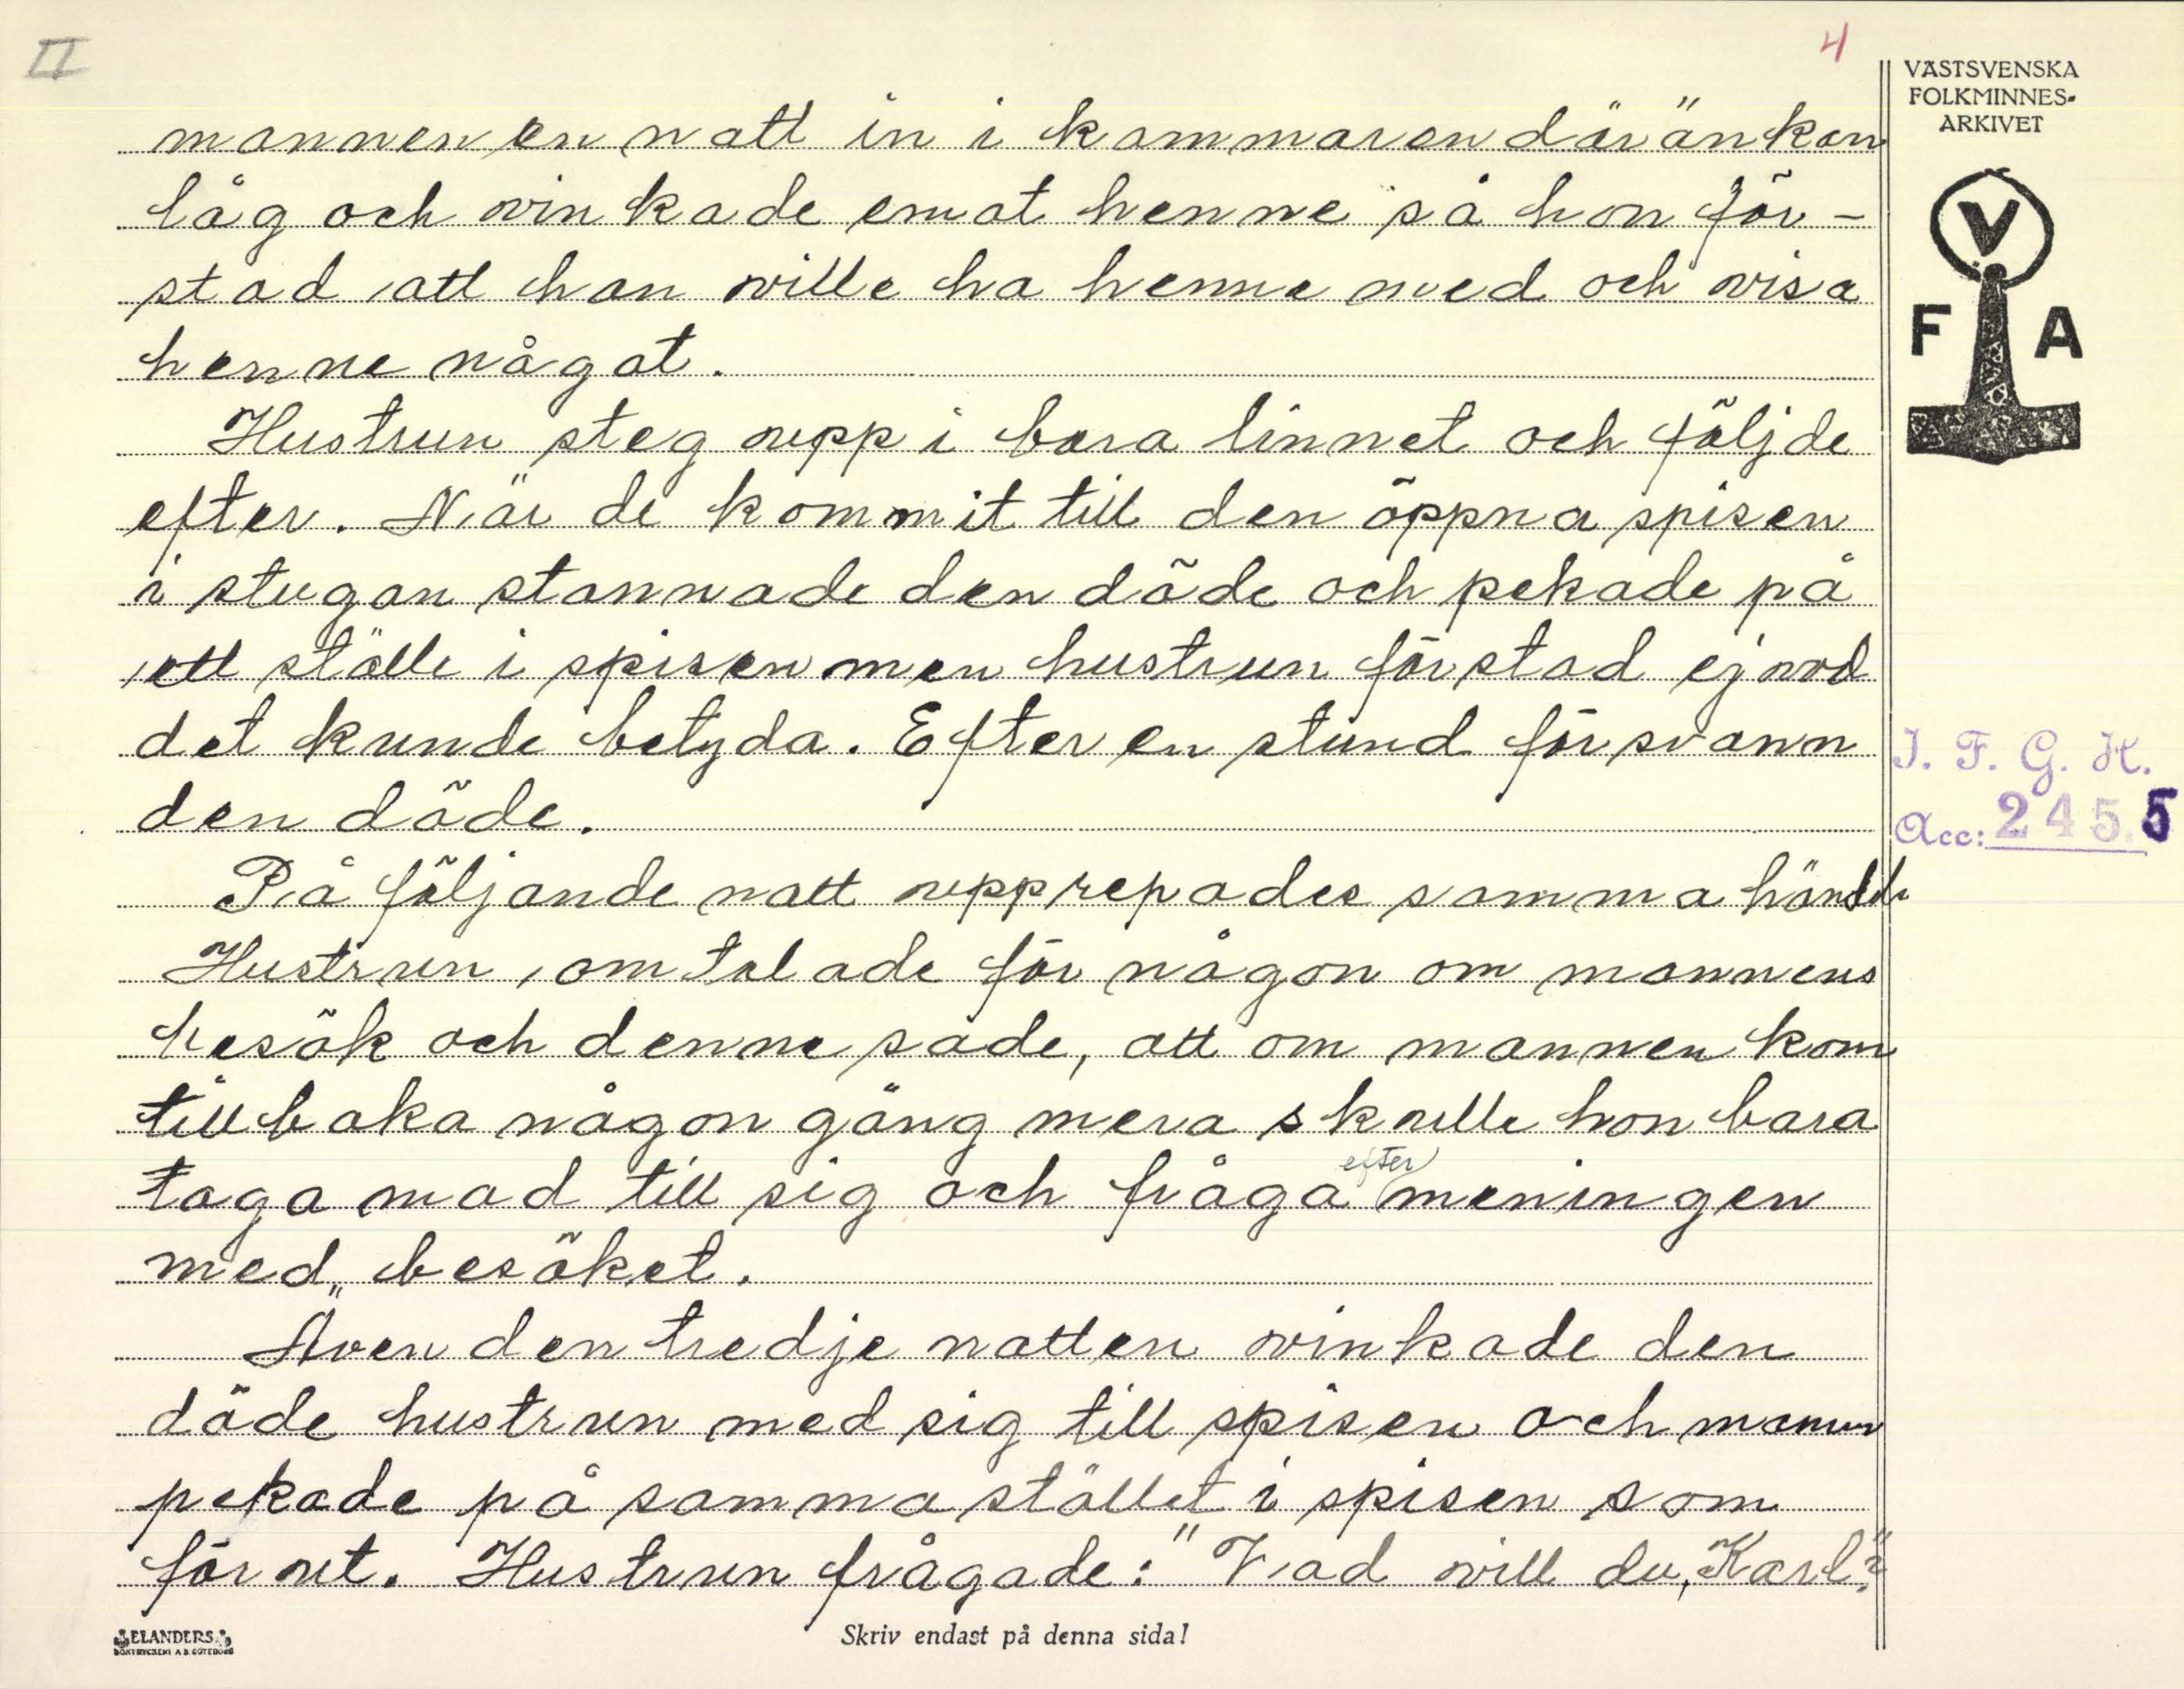 II
4
VÄSTSVENSKA
FOLKMINNES-
ARKIVET
V
F A
mannen en natt in i kammaren där änkan
låg och vinkade emot henne så hon för-
stod att han ville ha henne med och visa
henne något.
Hustrun steg upp i bara linnet och följde
efter. När de kommit till den öppna spisen
i stugan stannade den döde och pekade på
ett ställe i spisen men hustrun förstod ej vad
det kunde betyda. Efter en stund försvann
den döde.
På följande natt upprepades samma händ
Hustrun omtalade för någon om mannens
besök och denne sade, att om mannen kom
tillbaka någon gång mera skulle hon bara
taga mod till sig och fråga efter meningen
med besöket.
Även den tredje natten vinkade den
döde hustrun med sig till spisen och mannen
pekade på samma stället i spisen som
förut. Hustrun frågade: "Vad vill du, Karl?"
I. F. G. H.
Acc: 2455
ELANDERS
BOKTRYCKERI A.B. GÖTEBORG
Skriv endast på denna sida!